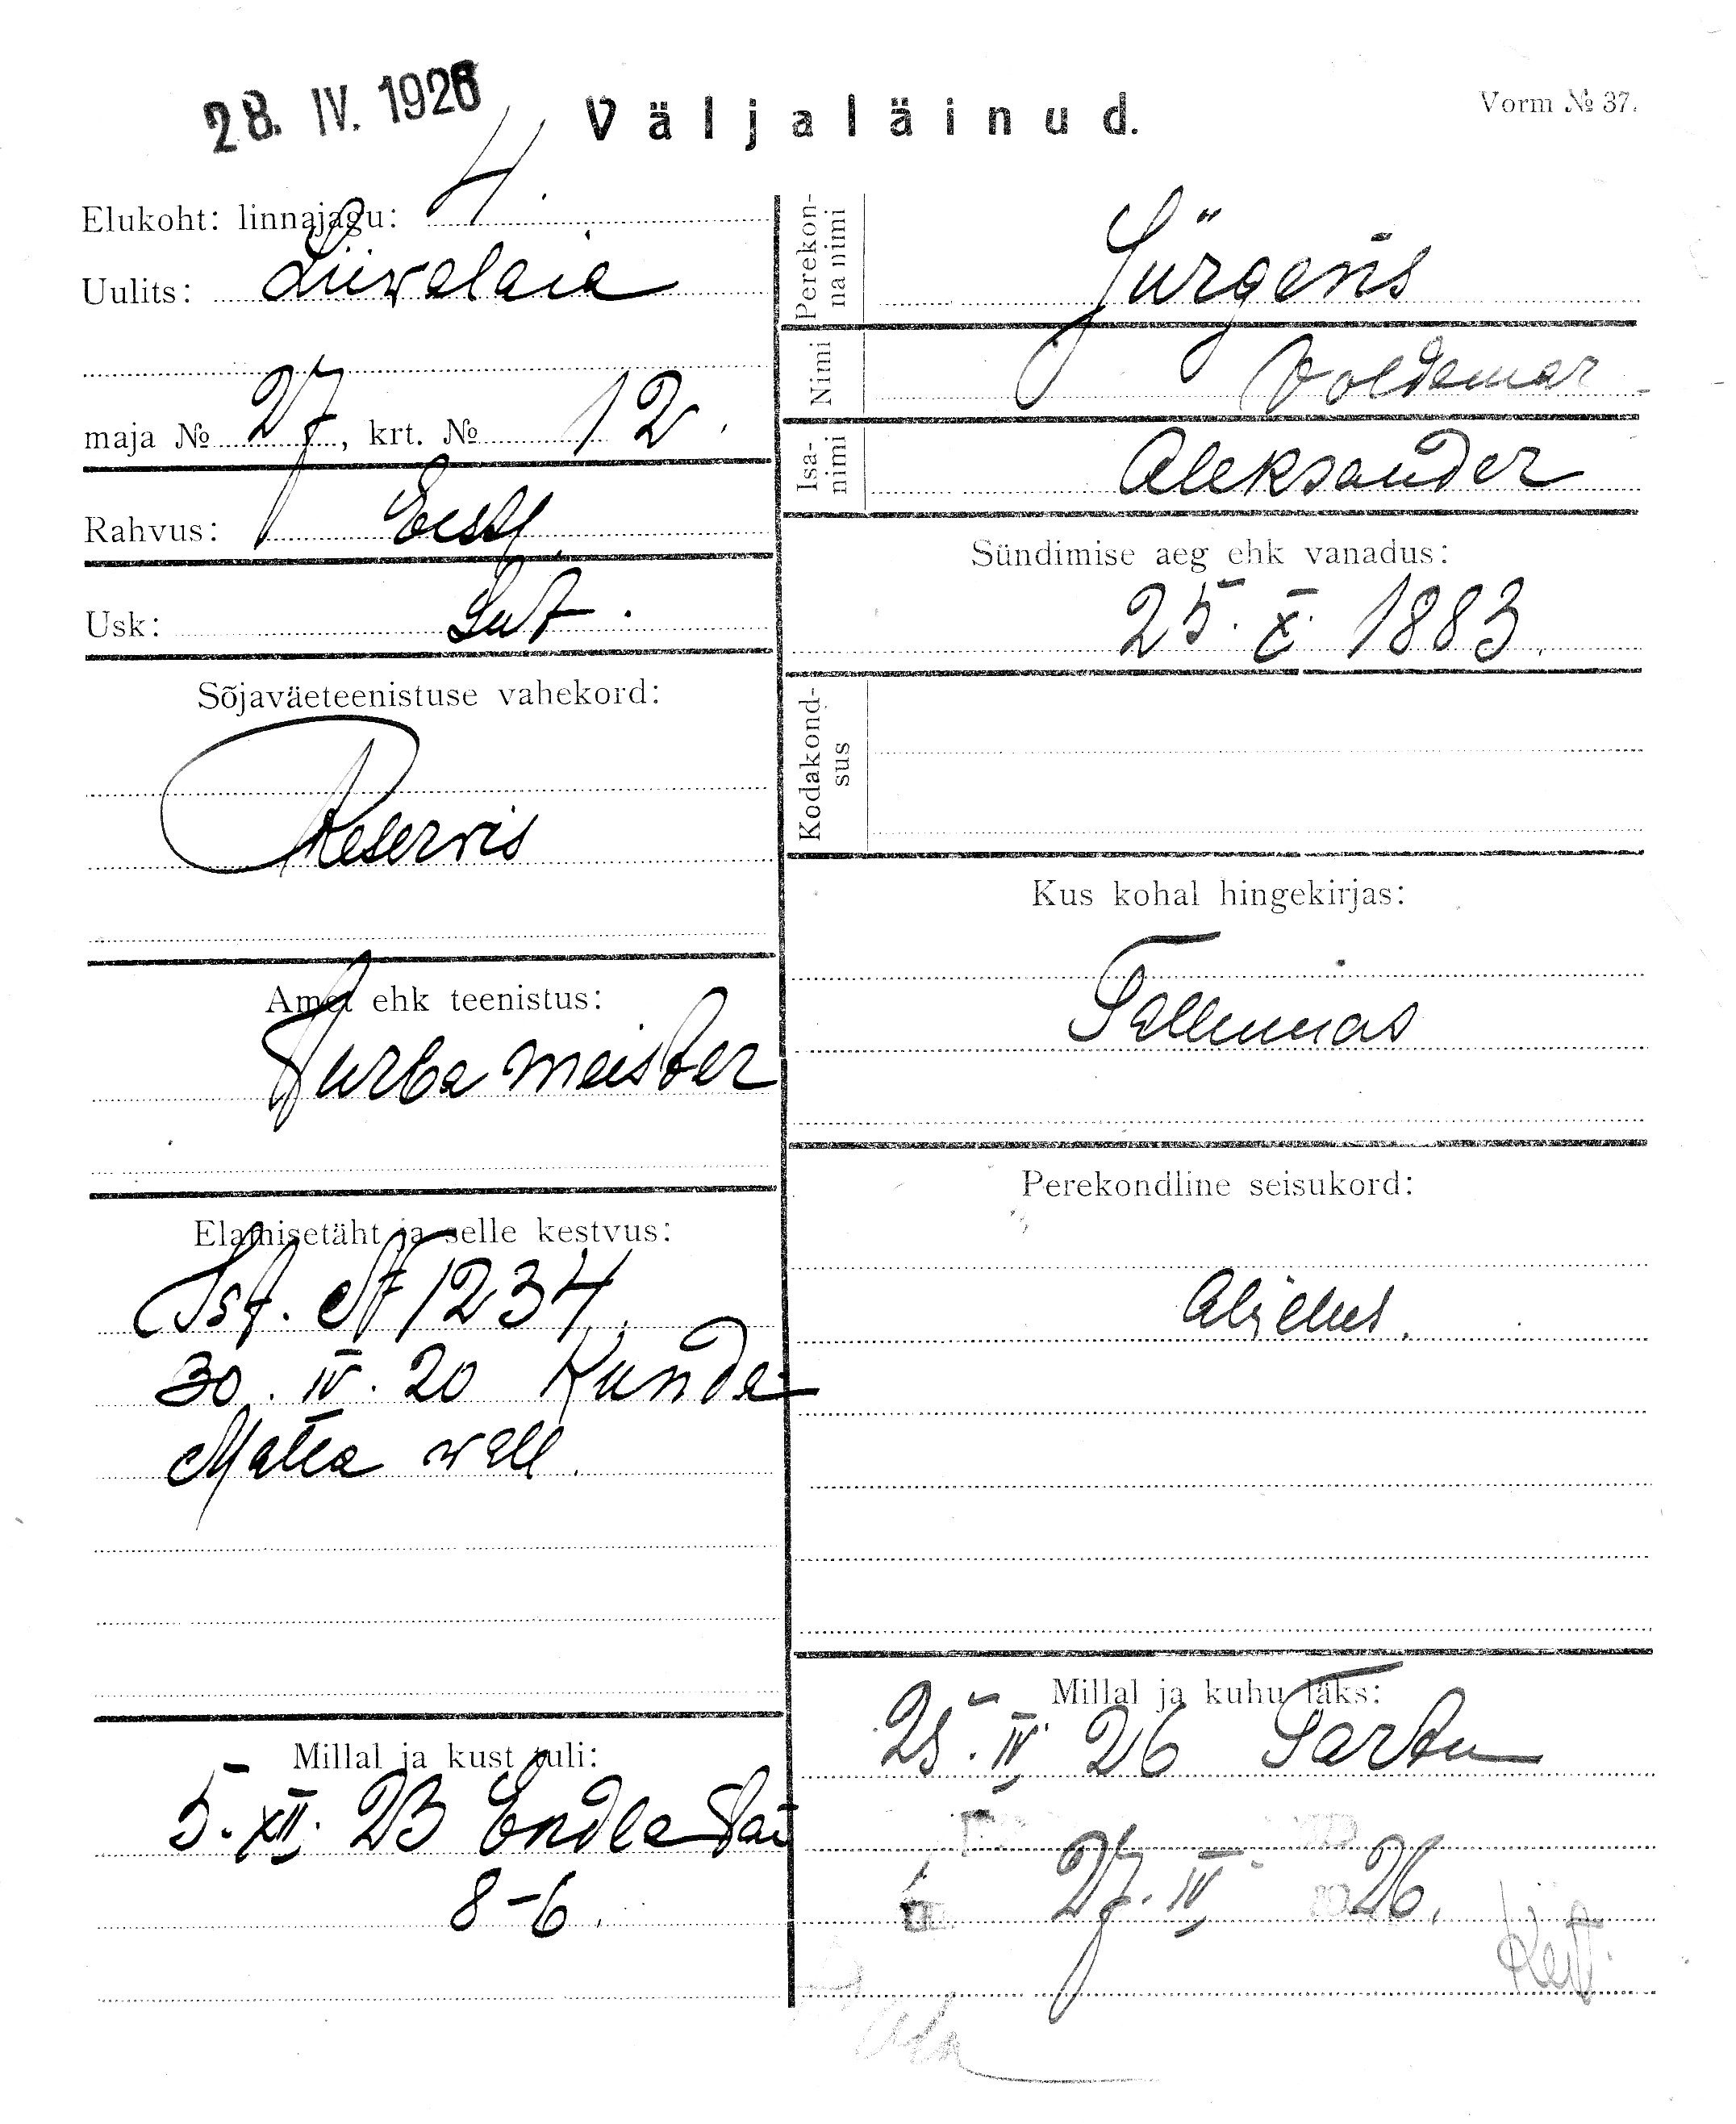 28. IV. 1926
Väljaläinud.
Vorm № 37.
Elukoht: linnajagu: 4.
Uulits: Liiwalaia
maja № 27, krt. № 12.
Rahvus: Eestl.
Usk: Lut.
Sõjaväeteenistuse vahekord:
Reservis
Amet ehk teenistus:
Turba meister
Elamisetäht ja selle kestvus:
Ist. № 1234
30. IV. 20 Kunda
Malla wall.
Millal ja kust tuli:
5. XII. 23 Endla
8-6.
Perekonna nimi
Jürgens
Nimi
Voldemar
Isanimi
Aleksander
Sündimise aeg ehk vanadus:
25. X. 1883.
Kodakondsus
Kus kohal hingekirjas:
Tallinnas
Perekondline seisukord:
Abielus.
Millal ja kuhu läks:
25. IV. 26 Tartu
27. IV. 26.